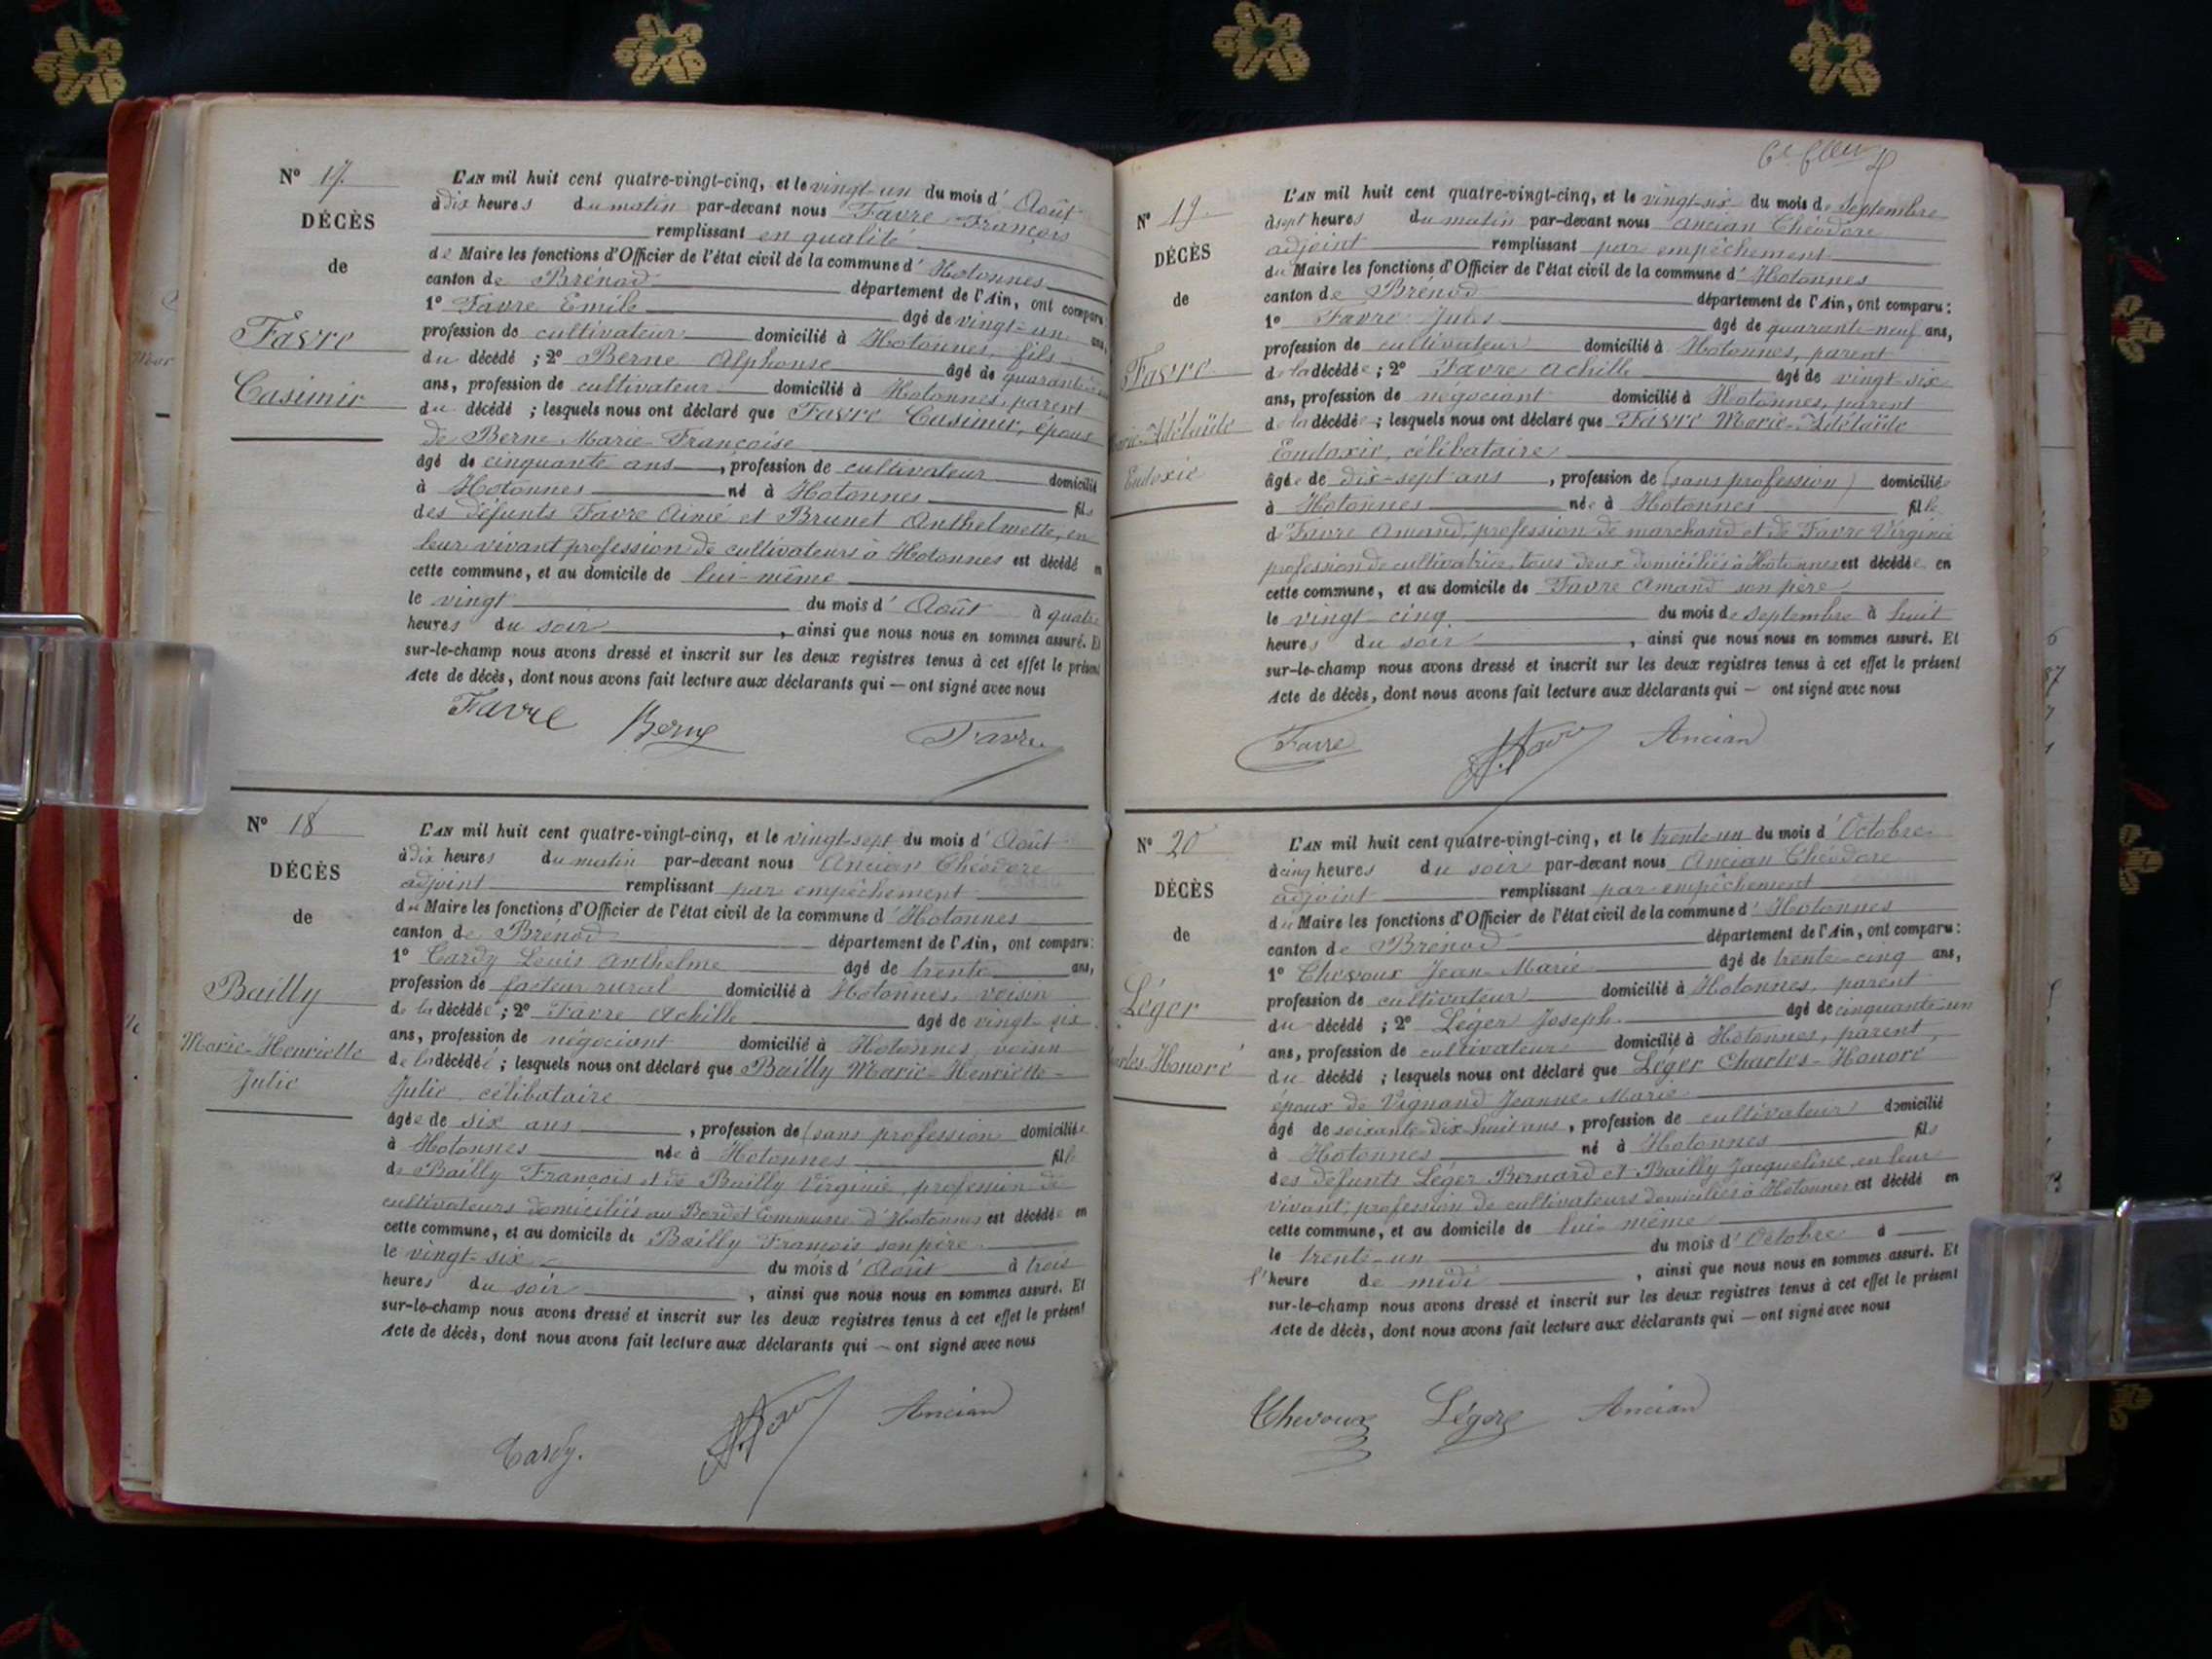 N° 17.
DÉCÈS
de
Favre
Casimir
L'AN mil huit cent quatre-vingt-cinq, et le vingt-un du mois d'Août
à dix heures du matin par-devant nous Favre François
remplissant en qualité
de Maire les fonctions d'Officier de l'état civil de la commune d'Hotonnes
canton de Brénod département de l'Ain, ont comparu:
1° Favre Emile âgé de vingt-un ans,
profession de cultivateur domicilié à Hotonnes, fils
du décédé ; 2° Berne Alphonse âgé de quarante
ans, profession de cultivateur domicilié à Hotonnes, parent
du décédé ; lesquels nous ont déclaré que Favre Casimir, époux
de Berne Marie Françoise
âgé de cinquante ans, profession de cultivateur domicilié
à Hotonnes né à Hotonnes fils
des défunts Favre Aimé et Brunet Anthelmette, en
leur vivant profession de cultivateurs à Hotonnes est décédé en
cette commune, et au domicile de lui-même
le vingt du mois d'Août à quatre
heures du soir, ainsi que nous nous en sommes assuré. Et
sur-le-champ nous avons dressé et inscrit sur les deux registres tenus à cet effet le présent
Acte de décès, dont nous avons fait lecture aux déclarants qui — ont signé avec nous
Favre Berne Favre
N° 18
DÉCÈS
de
Bailly
Marie-Henriette
Julie
L'AN mil huit cent quatre-vingt-cinq, et le vingt-sept du mois d'Août
à dix heures du matin par-devant nous Ancian Théodore
adjoint remplissant par empêchement
du Maire les fonctions d'Officier de l'état civil de la commune d'Hotonnes
canton de Brénod département de l'Ain, ont comparu:
1° Tardy Louis Anthelme âgé de trente ans,
profession de facteur rural domicilié à Hotonnes, voisin
de la décédée ; 2° Favre Achille âgé de vingt-six
ans, profession de négociant domicilié à Hotonnes, voisin
de la décédé ; lesquels nous ont déclaré que Bailly Marie-Henriette-
Julie, célibataire
âgée de six ans, profession de (sans profession domiciliée
à Hotonnes née à Hotonnes fille
de Bailly François et de Bailly Virginie, profession de
cultivateurs domiciliés au Bordet Commune d'Hotonnes est décédée en
cette commune, et au domicile de Bailly François son père
le vingt-six du mois d'Août à trois
heures du soir, ainsi que nous nous en sommes assuré. Et
sur-le-champ nous avons dressé et inscrit sur les deux registres tenus à cet effet le présent
Acte de décès, dont nous avons fait lecture aux déclarants qui — ont signé avec nous
Tardy. Ancian
N° 19
DÉCÈS
de
Favre
Adélaïde
Eudoxie
L'AN mil huit cent quatre-vingt-cinq, et le vingt-six du mois de Septembre
à sept heures du matin par-devant nous Ancian Théodore
adjoint remplissant par empêchement
du Maire les fonctions d'Officier de l'état civil de la commune d'Hotonnes
canton de Brénod département de l'Ain, ont comparu:
1° Favre Jules âgé de quarante-neuf ans,
profession de cultivateur domicilié à Hotonnes, parent
de la décédée ; 2° Favre Achille âgé de vingt-six
ans, profession de négociant domicilié à Hotonnes, parent
de la décédée ; lesquels nous ont déclaré que Favre Marie-Adélaïde
Eudoxie, célibataire
âgée de dix-sept ans, profession de (sans profession) domiciliée
à Hotonnes née à Hotonnes fille
d'Favre Amand, profession de marchand et de Favre Virginie
profession de cultivatrice, tous deux domiciliés à Hotonnes est décédée en
cette commune, et au domicile de Favre Amand son père
le vingt cinq du mois de Septembre à huit
heures du soir, ainsi que nous nous en sommes assuré. Et
sur-le-champ nous avons dressé et inscrit sur les deux registres tenus à cet effet le présent
Acte de décès, dont nous avons fait lecture aux déclarants qui — ont signé avec nous
Favre Ancian
N° 20
DÉCÈS
de
Léger
Honoré
L'AN mil huit cent quatre-vingt-cinq, et le trente-un du mois d'Octobre
à cinq heures du soir par-devant nous Ancian Théodore
adjoint remplissant par empêchement
du Maire les fonctions d'Officier de l'état civil de la commune d'Hotonnes
canton de Brénod département de l'Ain, ont comparu:
1° Chevoux Jean-Marie âgé de trente-cinq ans,
profession de cultivateur domicilié à Hotonnes, parent
du décédé ; 2° Léger Joseph âgé de cinquante-un
ans, profession de cultivateur domicilié à Hotonnes, parent
du décédé ; lesquels nous ont déclaré que Léger Charles-Honoré
époux de Vignand Jeanne-Marie
âgé de soixante-dix-huit ans, profession de cultivateur domicilié
à Hotonnes né à Hotonnes fils
des défunts Léger Bernard et Bailly Jacqueline, en leur
vivant, profession de cultivateurs domiciliés à Hotonnes est décédé en
cette commune, et au domicile de lui-même
le trente-un du mois d'Octobre à
l'heure de midi, ainsi que nous nous en sommes assuré. Et
sur-le-champ nous avons dressé et inscrit sur les deux registres tenus à cet effet le présent
Acte de décès, dont nous avons fait lecture aux déclarants qui — ont signé avec nous
Chevoux Léger Ancian